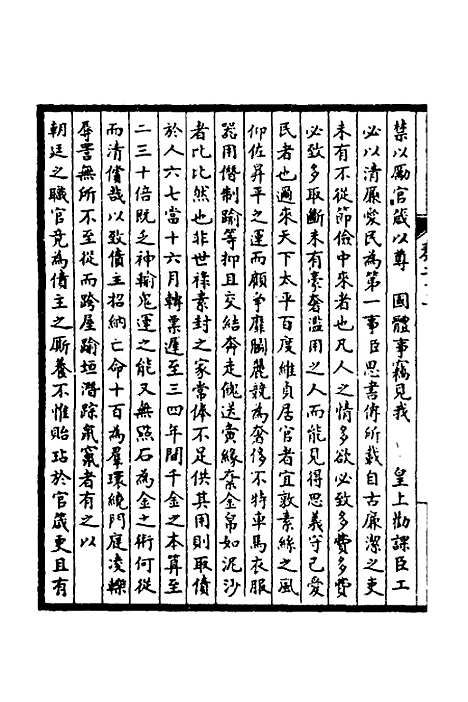 禁以勵官箴以尊 國體事竊見我 皇上勸課臣工
必以清廉愛民為第一事臣思書傳所載自古廉潔之吏
未有不從節儉中來者也凡人之情多欲必致多費多費
必致多取斷未有豪奢濫用之人而能見得思義守己愛
民者也邇來天下太平百度維貞居官者宜敦素絲之風
仰佐昇平之運而顧爭靡鬬麗競為奢侈不特車馬衣服
器用僭制踰等抑且交結奔走餽送夤緣棄金帛如泥沙
者比比然也非世祿素封之家常俸不足供其用則取債
於人六七當十六月轉票遲至三四年間千金之本算至
二三十倍既乏神輸鬼運之能又無點石為金之術何從
而清償哉以致債主招納亡命十百為羣環繞門庭凌轢
辱詈無所不至從而跨屋踰垣潛踪氣窮者有之以
朝廷之職官竟為債主之厮養不惟貽玷於官箴更且有